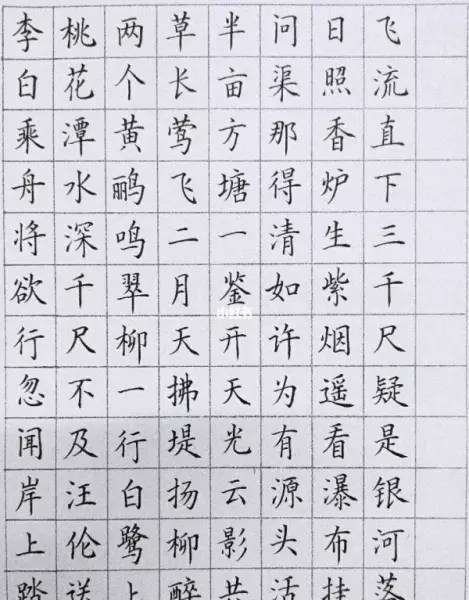 李白乘舟将欲行忽闻岸上踏
桃花潭水深千尺不及汪伦送
两个黄鹂鸣翠柳一行白鹭上
草长莺飞二月天拂堤扬柳醉
半亩方塘一鉴开天光云影共
问渠那得清如许为有源头活
日照香炉生紫烟遥看瀑布挂
飞流直下三千尺疑是银河落
小红书